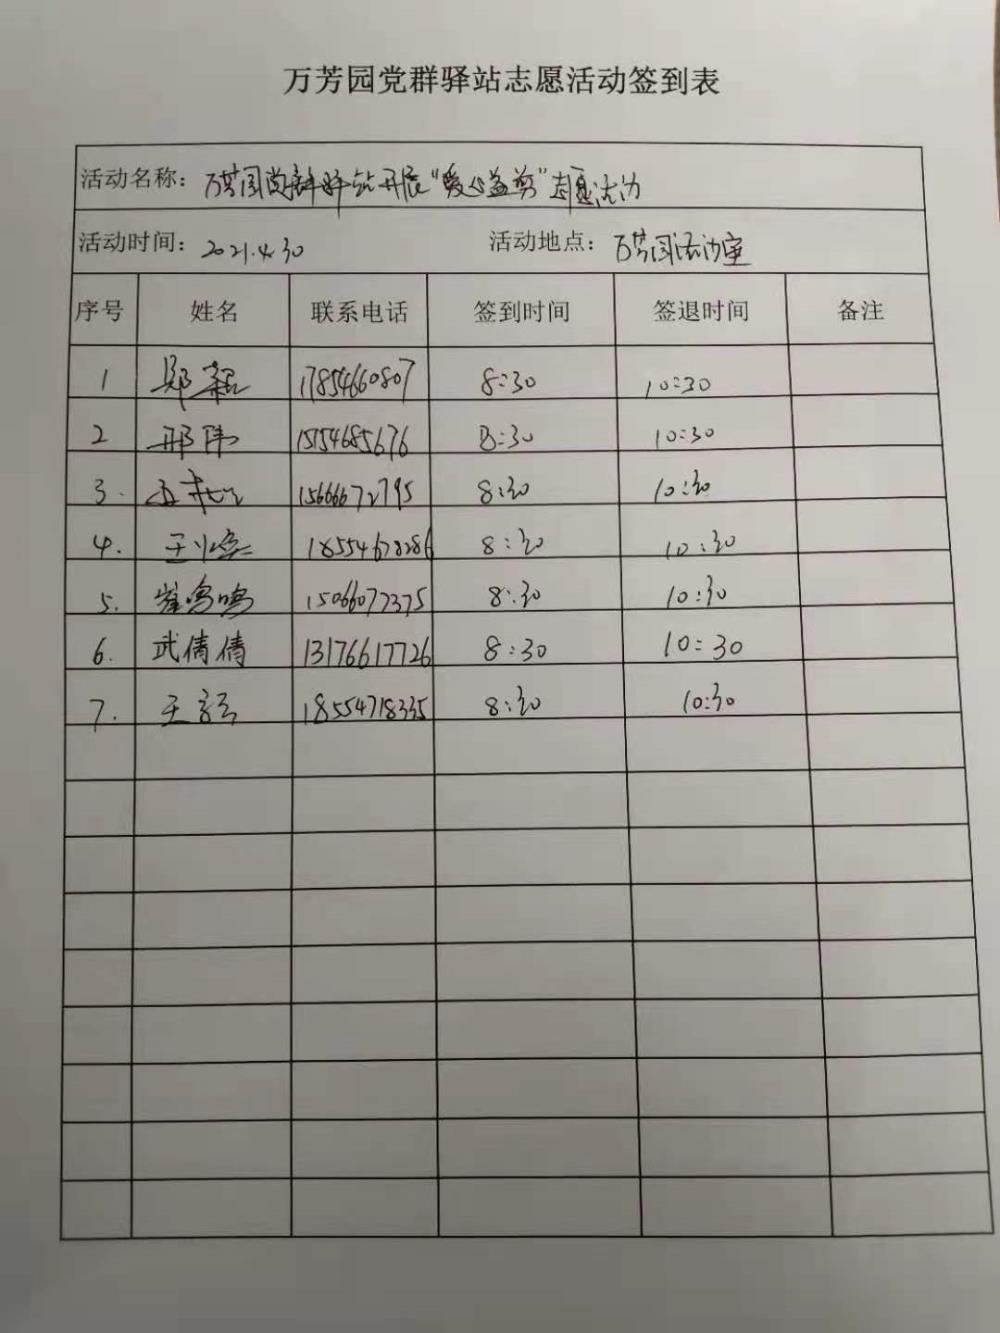 万芳园党群驿站志愿活动签到表
活动名称: 万芳园党群驿站开展“爱心益剪”志愿活动
活动时间: 2021.4.30 活动地点: 万芳园活动室
序号 姓名 联系电话 签到时间 签退时间 备注
1 郑 17854660807 8:30 10:30
2 邢伟 15154685676 8:30 10:30
3. 15666672795 8:30 10:30
4. 王 18554678286 8:30 10:30
5. 崔鸣鸣 15066077375 8:30 10:30
6. 武倩倩 13176617726 8:30 10:30
7. 王 18554718335 8:30 10:30